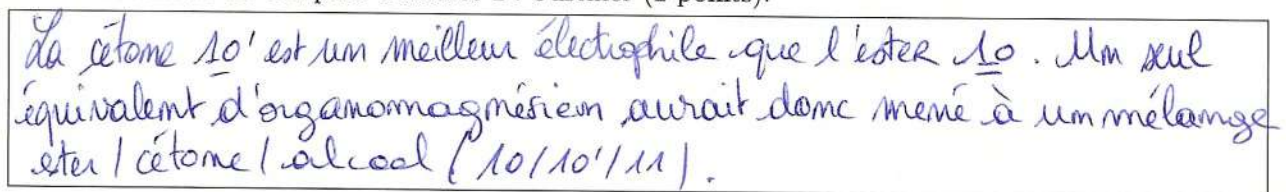 (2 points).
La cétone 10' est un meilleur électrophile que l'ester 10. Un seul
équivalent d'organomagnésien aurait donc mené à un mélange
ester / cétone / alcool (10/10'/11).